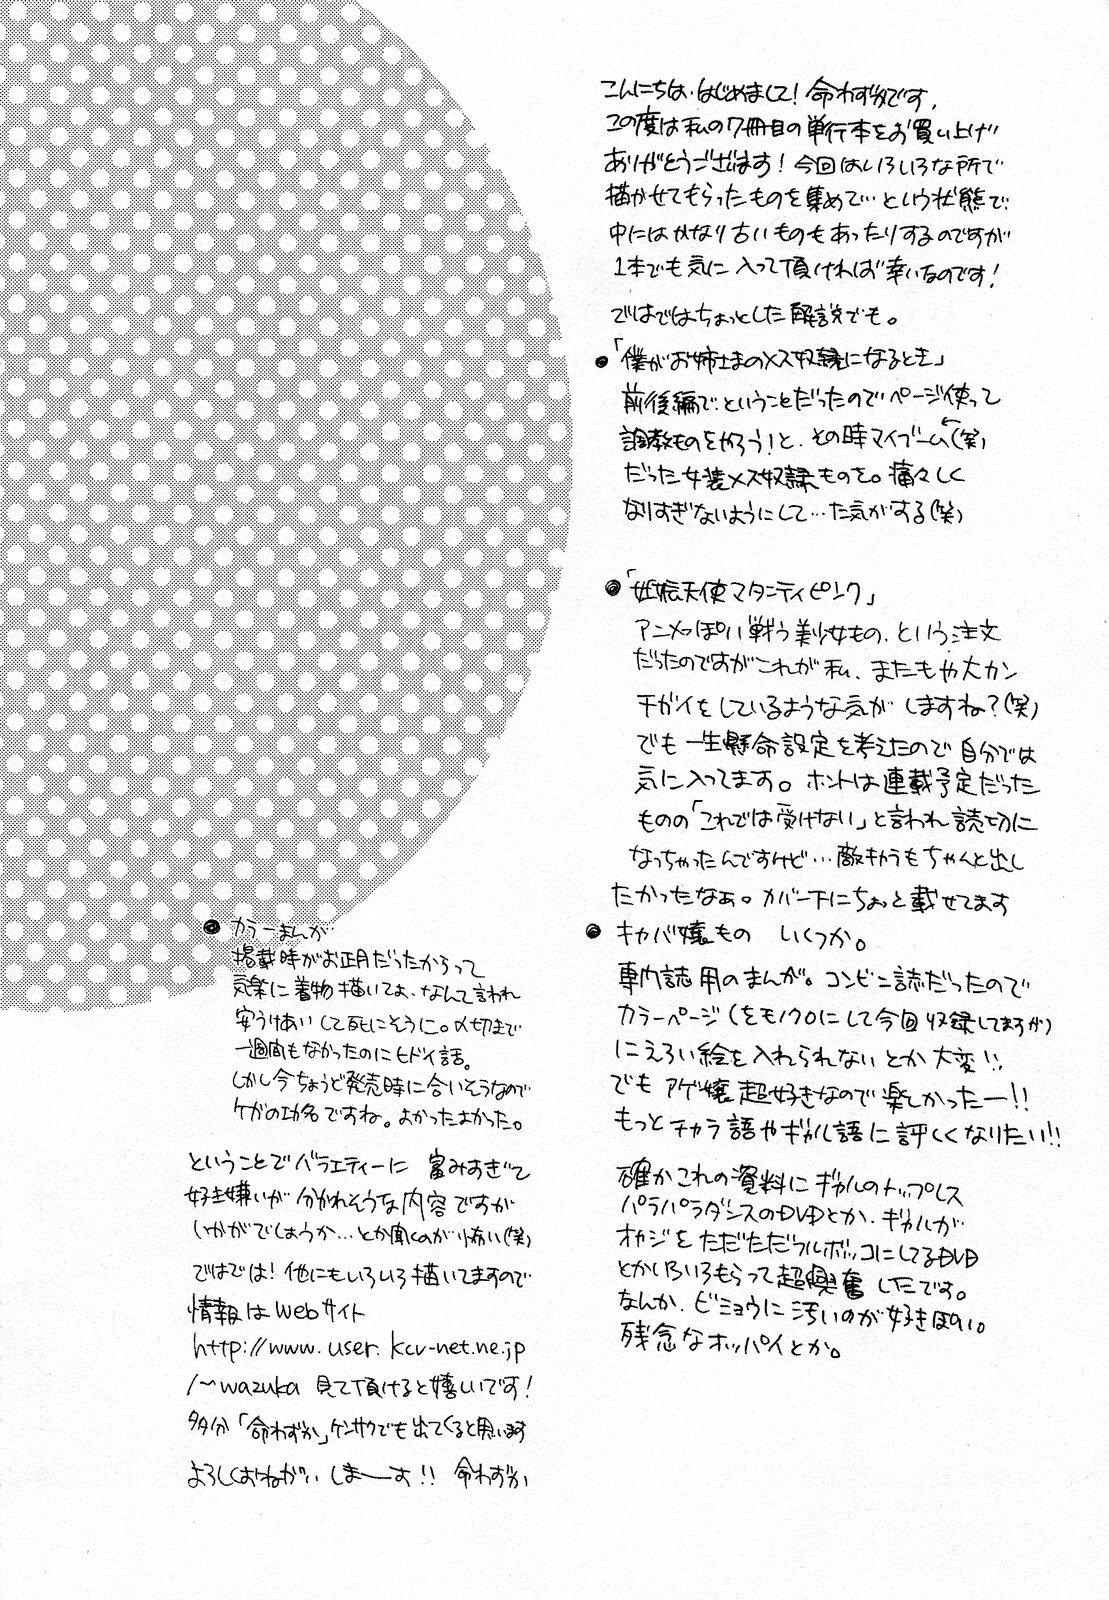 こんにちは、はじめまして！命わずかです。
この度は私の7冊目の単行本をお買い上げ
ありがとうございます！今回はいろいろな所で
描かせてもらったものを集めて…という状態で
中にはかなり古いものもあったりするのですが
1本でも気に入って頂ければ幸いなのです！
ではではちょっとした解説でも。
●「僕がお姉さまのメス奴隷になるとき」
前後編で、ということだったのでページ使って
調教ものをやろう！と、その時マイブーム←(笑)
だった女装メス奴隷ものを。痛々しく
なりすぎないようにして…た気がする(笑)
●「妊娠天使マタニティピンク」
アニメっぽい戦う美少女もの、という注文
だったのですがこれが私、またもや大カン
チガイをしているような気がしますね？(笑)
でも一生懸命設定を考えたので自分では
気に入ってます。ホントは連載予定だった
ものの「これでは受けない」と言われ読切に
なっちゃったんですけど…敵キャラもちゃんと出し
たかったなぁ。カバー下にちょっと載せてます
●キャバ嬢もの いくつか。
専門誌用のまんが。コンビニ誌だったので
カラーページ(をモノクロにして今回収録してますが)
にえろい絵を入れられないとか大変!!
でもアゲ嬢超好きなので楽しかったー!!
もっとチャラ語やギャル語に詳しくなりたい!!
確かこれの資料にギャルのトップレス
パラパラダンスのDVDとか、ギャルが
オヤジをただただフルボッコにしてるDVD
とかいろいろもらって超興奮したです。
なんか、ビミョウに汚いのが好きぽい。
残念なオッパイとか。
●カラーまんが
掲載時がお正月だったからって
気楽に着物描いてよ、なんて言われ
安うけあいして死にそうに。〆切まで
一週間もなかったのにヒドイ話。
しかし今ちょうど発売時に合いそうなので
ケガの功名ですね。よかったよかった。
ということでバラエティーに富みすぎて
好き嫌いが分かれそうな内容ですが
いかがでしょうか…とか聞くのが怖い(笑)
ではでは！他にもいろいろ描いてますので
情報はWebサイト
http://www.user.kcv-net.ne.jp
/~wazuka 見て頂けると嬉しいです！
多分「命わずか」ケンサクでも出てくると思います
よろしくおねがいしまーす!! 命わずか